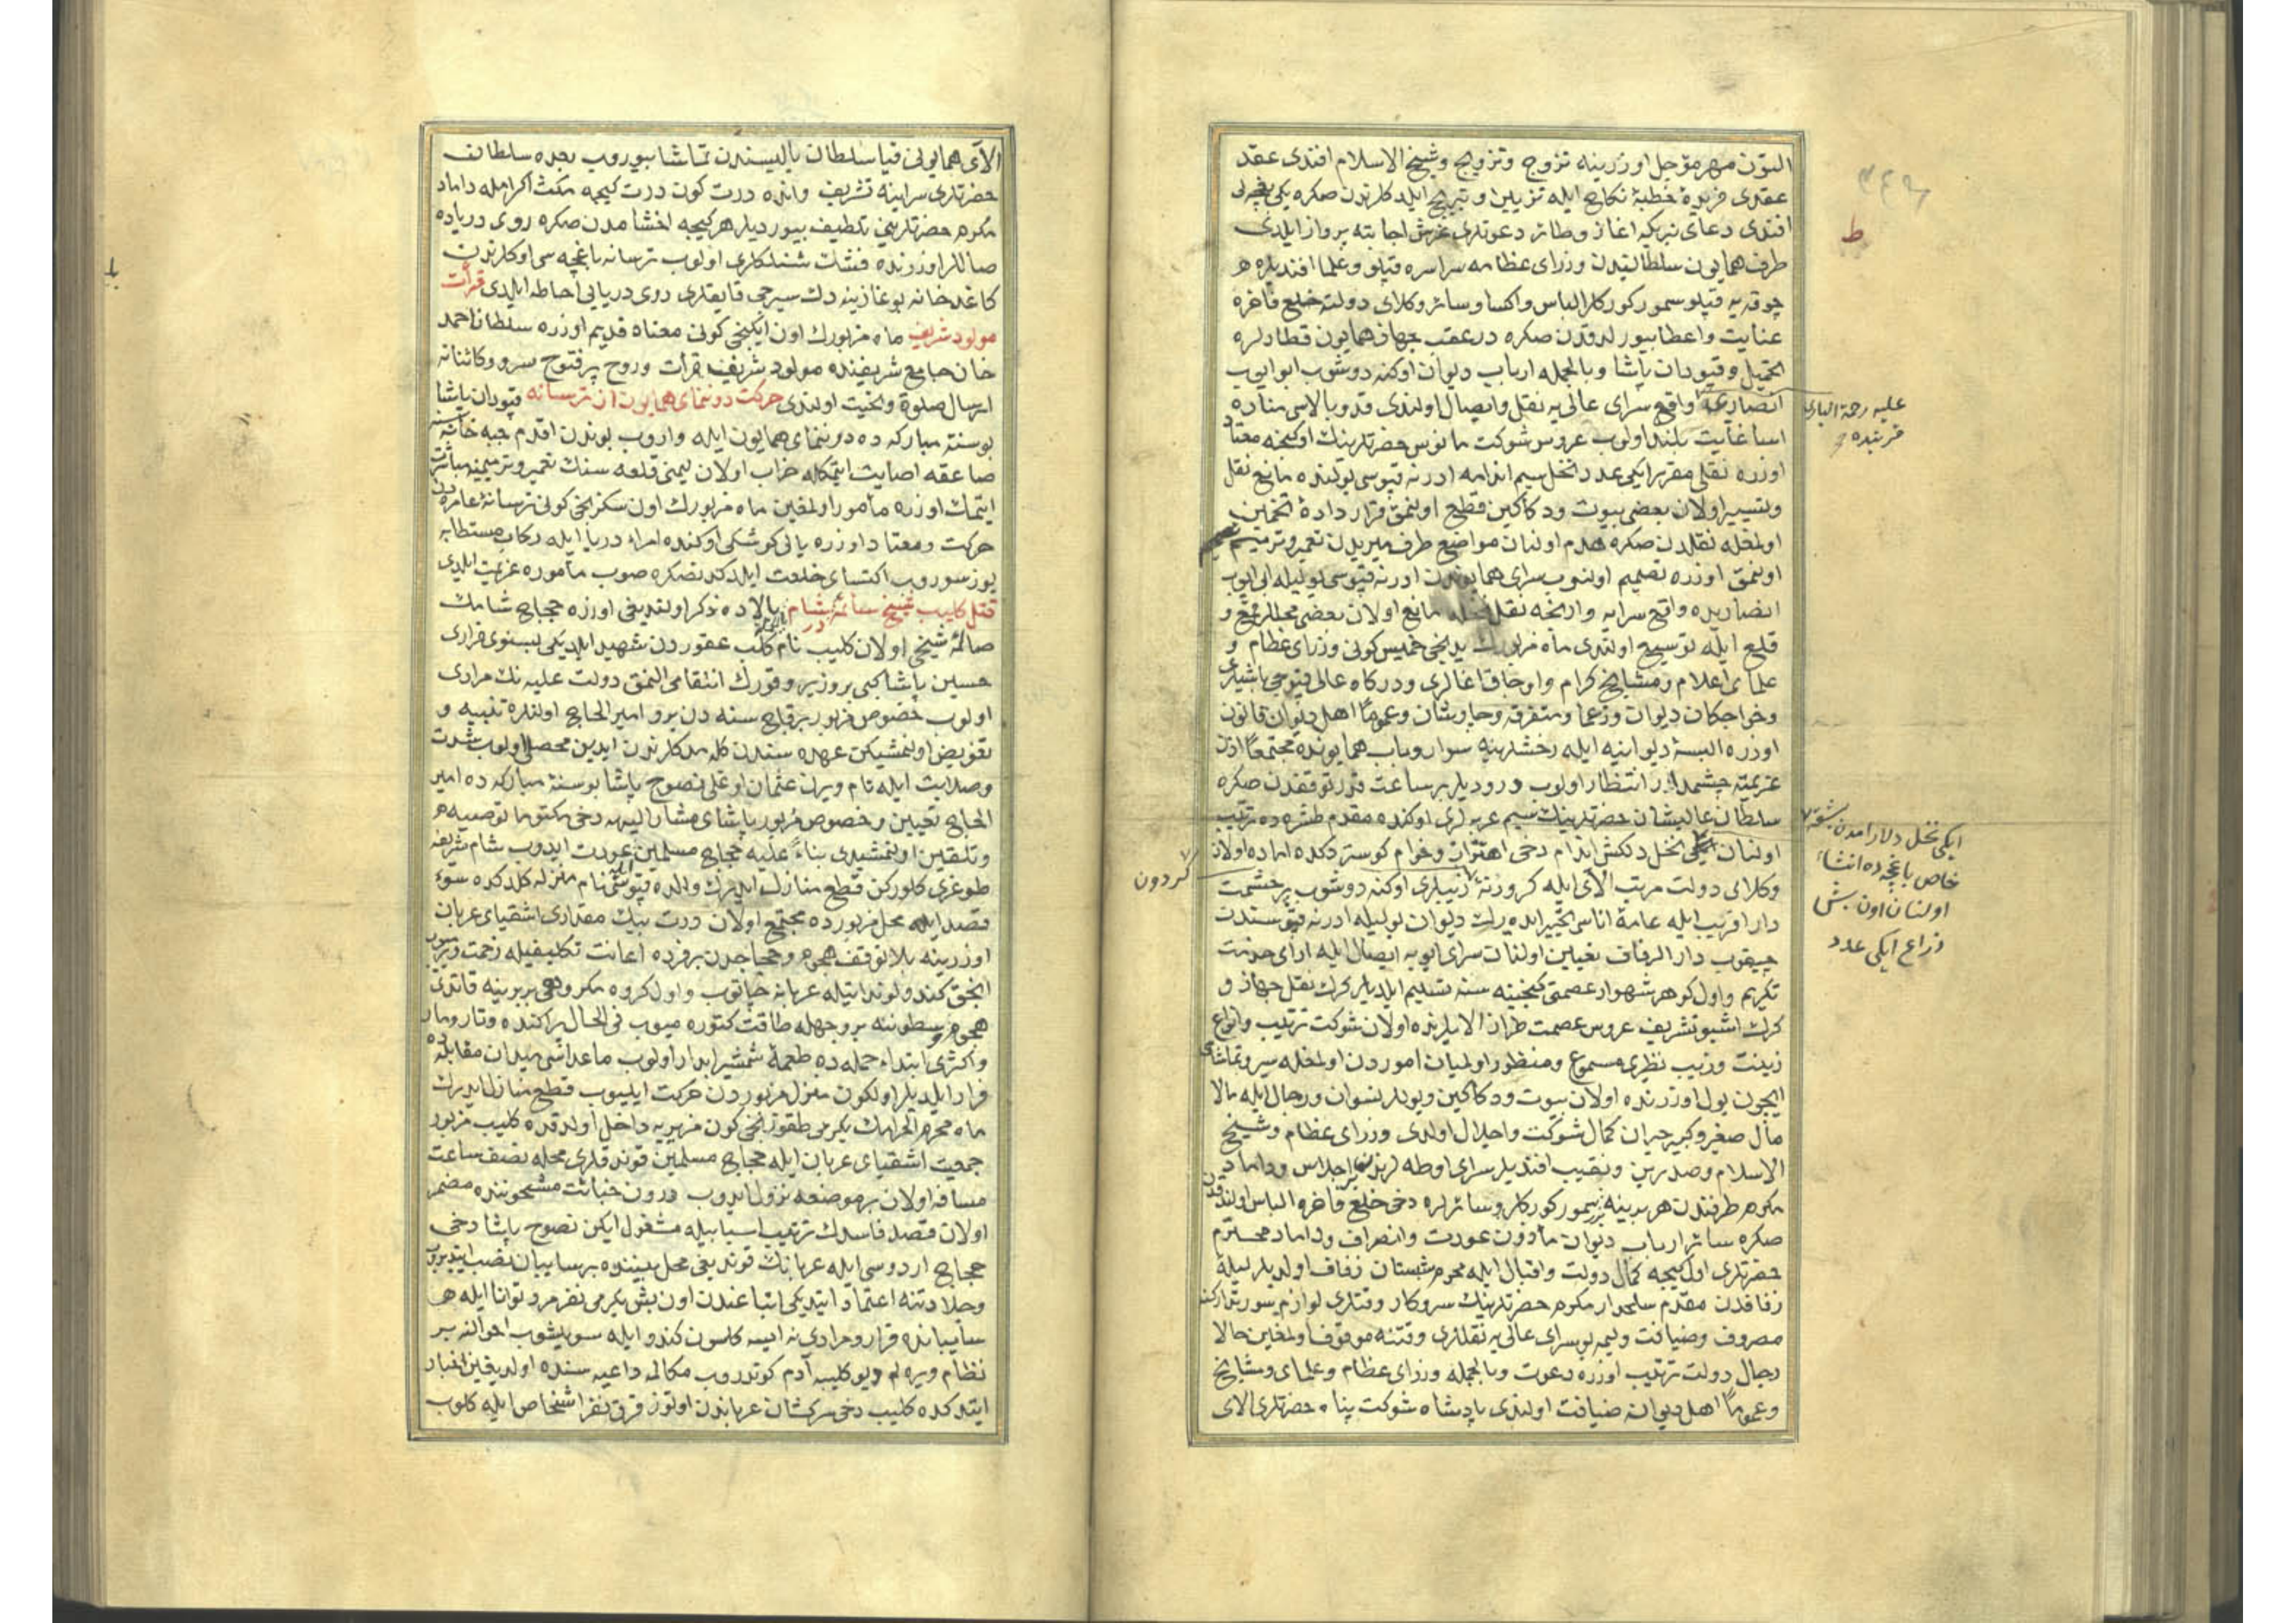 التون مهر مؤجل اوزرينه تزوج وتزويج وشيخ الاسلام افندى عقد
عقدى فريدۀ خطبۀ نكاح ايله تزيين و ايلدكلرندن صكره يكى
افندى دعاى تبريكه اغاز وطائر دعوتلرى عرش اجابته پرواز ايلدى
طرف همايون سلطانيدن وزراى عظامه سراسره قپلو وعلما افنديلره
چوقه يه قپلو سمور كوركلر الباس واكسا وسائر وكلاى دولته خلع فاخره
عنايت واعطا بيورلدقدن صكره درعقب جهاز همايون قطارلره
تحميل وقپودان پاشا وبالجمله ارباب ديوان اوكنه دوشوب ابو ايوب
انصارى واقع سراى عالى يه نقل وايصال اولندى قد وبالاسى مناره
اسا غايت بلند اولوب عروس شوكت مانوس حضرتلرينك اوكنجه معتاد
اوزره نقلى مقرر ايكى عدد نخل سيم اندامه ادرنه قپوسى يولنده مانع نقل
وتسيير اولان بعضى بيوت ودكاكين قطع اولنمق قرار دادۀ
اولمغله نقلدن صكره هدم اولنان مواضع طرف ميريدن تعمير وترميم
اولنمق اوزره تصميم اولنوب سراى همايوندن ادرنه قپوسى يوليله ابى ايوب
انصاريده واقع سرايه وارنجه نقل نخله مانع اولان بعضى محللر رفع و
قلع ايله توسيع اولندى ماه مزبورك يدنجى خميس كونى وزراى عظام و
علماى اعلام ومشايخ كرام واوجاق اغالرى ودركاه عالى قپوجى باشيلرى
وخواجكان ديوان وزعما ومتفرقه وچاوشان وعموماً اهل ديوان قانون
اوزره البسۀ ديوانيه ايله رخشلرينه سوار وباب همايونده مجتمعاً اذن
عزيمته چشمدار انتظار اولوب ورود يلر بر ساعت قدر توقفدن صكره
سلطان عاليشان حضرتلرينك سيم عربه لرى اوكنده مقدم طشره ده ترتيب
اولنان ايكى نخل دلكش اندام دخى اهتزاز وخرام كوستردكده اماده اولان
وكلاى دولت مرتب الاى ايله كروزنه اوكنه دوشوب پر حشمت
دار اقريب ايله عامۀ اناسى تحيير ايده رك ديوان يوليله ادرنه قپوسندن
چيقوب دار الزفاف تعيين اولنان سراى ايوبه ايصال ايله اداى خدمت
تكريم واول كوهر شهوار عصمتى كنجينه سنه تسليم ايلديلر كرك نقل جهاز و
كرك اشبو تشريف عروس عصمت طراز الايلرنده اولان شوكت ترتيب وانواع
زينت وزيب نظيرى مسموع ومنظور اولميان اموردن اولمغله سير وتماشاسى
ايچون يول اوزرنده اولان بيوت ودكاكين ويوللر نسوان ورجال ايله مالا
مال صغير وكبير حيران كمال شوكت واجلال اولدى وزراى عظام وشيخ
الاسلام وصدرين ونقيب افنديلر سراى اوطه لرنده اجلاس وداماد
مكرم طرفندن هر برينه برر سمور كوركلر وسائرلره دخى خلع فاخره الباس اولندقدن
صكره سائر ارباب ديوان مأذون عودت وانصراف وداماد محترم
حضرتلرى اول كيجه كمال دولت واقبال ايله محرم شبستان زفاف اولديلر ليلۀ
زفافدن مقدم سلحدار مكرم حضرتلرينك سروكار وقتلرى لوازم سور تداركنه
مصروف وضيافت وليمه بو سراى عالى يه نقللرى وقتنه موقوف اولمغين حالا
رجال دولت ترتيب اوزره دعوت وبالجمله وزراى عظام وعلماى ومشايخ
وعموماً اهل ديوان ضيافت اولندى پادشاه شوكت پناه حضرتلرى الاى
٣٤٦
ط
عليه رحمة البارى
قربنده
ايكى نخل دلارامدن بشقه
خاص باغچه ده انشاء
اولنان اون بش
ذراع ايكى عدد
كردون
الاى همايونى قيا سلطان ياليسندن تماشا بيوروب بعده سلطان
حضرتلرى سراينه تشريف وانده درت كون درت كيجه مكث اكرامله داماد
مكرم حضرتلرينى تلطيف بيورديلر هر كيجه اخشامدن صكره روى درياده
صاللر اوزرنده فشنك شنلكلرى اولوب ترسانه باغچه سى اوكلرندن
كاغدخانه بوغازينه دك سيرجى قايقلرى روى دريايى احاطه ايلدى قرأت
مولود شريف ماه مزبورك اون ايكنجى كونى معتاد قديم اوزره سلطان احمد
خان جامع شريفنده مولود شريف قرأت وروح پرفتوح سرور كائناته
ارسال صلوة وتحيت اولندى حركت دونماى همايون از ترسانه قپودان پاشا
بو سنۀ مباركه ده دونماى همايون ايله واروب بوندن اقدم جبه خانه سنه
صاعقه اصابت ايتمكله خراب اولان ليمنى قلعه سنك تعمير وترميمنه مباشرت
ايتمك اوزره مأمور اولمغين ماه مزبورك اون سكزنجى كونى ترسانۀ عامره دن
حركت ومعتاد اوزره يالى كوشكى اوكنده امراء دريا ايله ركاب مستطابه
يوز سوروب اكتساى خلعت ايلدكدنصكره صوب مأموره عزيمت ايلدى
قتل كليب شيخ در شام بالاده ذكر اولنديغى اوزره حجاج شامك
صالمه شيخى اولان كليب نام كلب عقوردن شهيد ايلديكى بسنوى فرارى
حسين پاشا كبى بر وزير وقورك انتقامى النمق دولت عليه نك مرادى
اولوب خصوص مزبور بر قاچ سنه دن برو امير الحاج اولنلره تنبيه و
تفويض اولنمشيكن عهده سندن كله مدكلرندن ايدين محصلى اولوب شدت
وصلابت ايله نام ويرن عثمان اوغلى نصوح پاشا بو سنۀ مباركه ده امير
الحاج تعيين وخصوص مزبور پاشاى مشار اليهه دخى مكتوما توصيه
وتلقين اولنمشيدى بناءً عليه حجاج مسلمين عودت ايدوب شام شريفه
طوغرى كلوركن قطع منازل ايدرك والده قپوسى نام منزله كلدكده سوء
قصد ايله محل مزبورده مجتمع اولان درت بيك مقدارى اشقياى عربان
اوزرينه بلا توقف هجوم وحجاجدن بر فرده اعانت تكليفيله زحمت ويرميوب
انجق كندو لونداتيله عربانه چاتوب واول كروه مكروهى بربرينه قاتدى
هجوم وسطوتنه بر وجهله طاقت كتوره ميوب فى الحال پراكنده وتارومار
واكثرى ابتداء حمله ده طعمۀ شمشير ابدار اولوب ماعداسى ميدان مقابله ده
فرار ايلديلر اولكون منزل مزبوردن حركت ايليوب قطع منازل ايدرك
ماه محرم الحرامك يكرمى طقوزنجى كون مزيريبه داخل اولدقده كليب مزبور
جمعيت اشقياى عربان ايله حجاج مسلمين قوندقلرى محله نصف ساعت
مسافه اولان بر موضعه نزول ايدوب درون خباثت مشحوننده مضمر
اولان قصد فاسدك ترتيب اسبابيله مشغول ايكن نصوح پاشا دخى
حجاج اردوسى ايله عربانك قونديغى محل بيننده بر سايبان نصب ايتديروب
وجلادتنه اعتماد ايتديكى اتباعندن اون بش يكرمى نفر مرد توانا ايله
سايبانده قرار ومرادى نه ايسه كلسون كندو ايله سويلشوب احوالنه بر
نظام ويره لم ديو كليبه آدم كوندروب مكالمه داعيه سنده اولديغين اخبار
ايتدكده كليب دخى سركشان عرباندن اوتوز قرق نفر اشخاص ايله كلوب